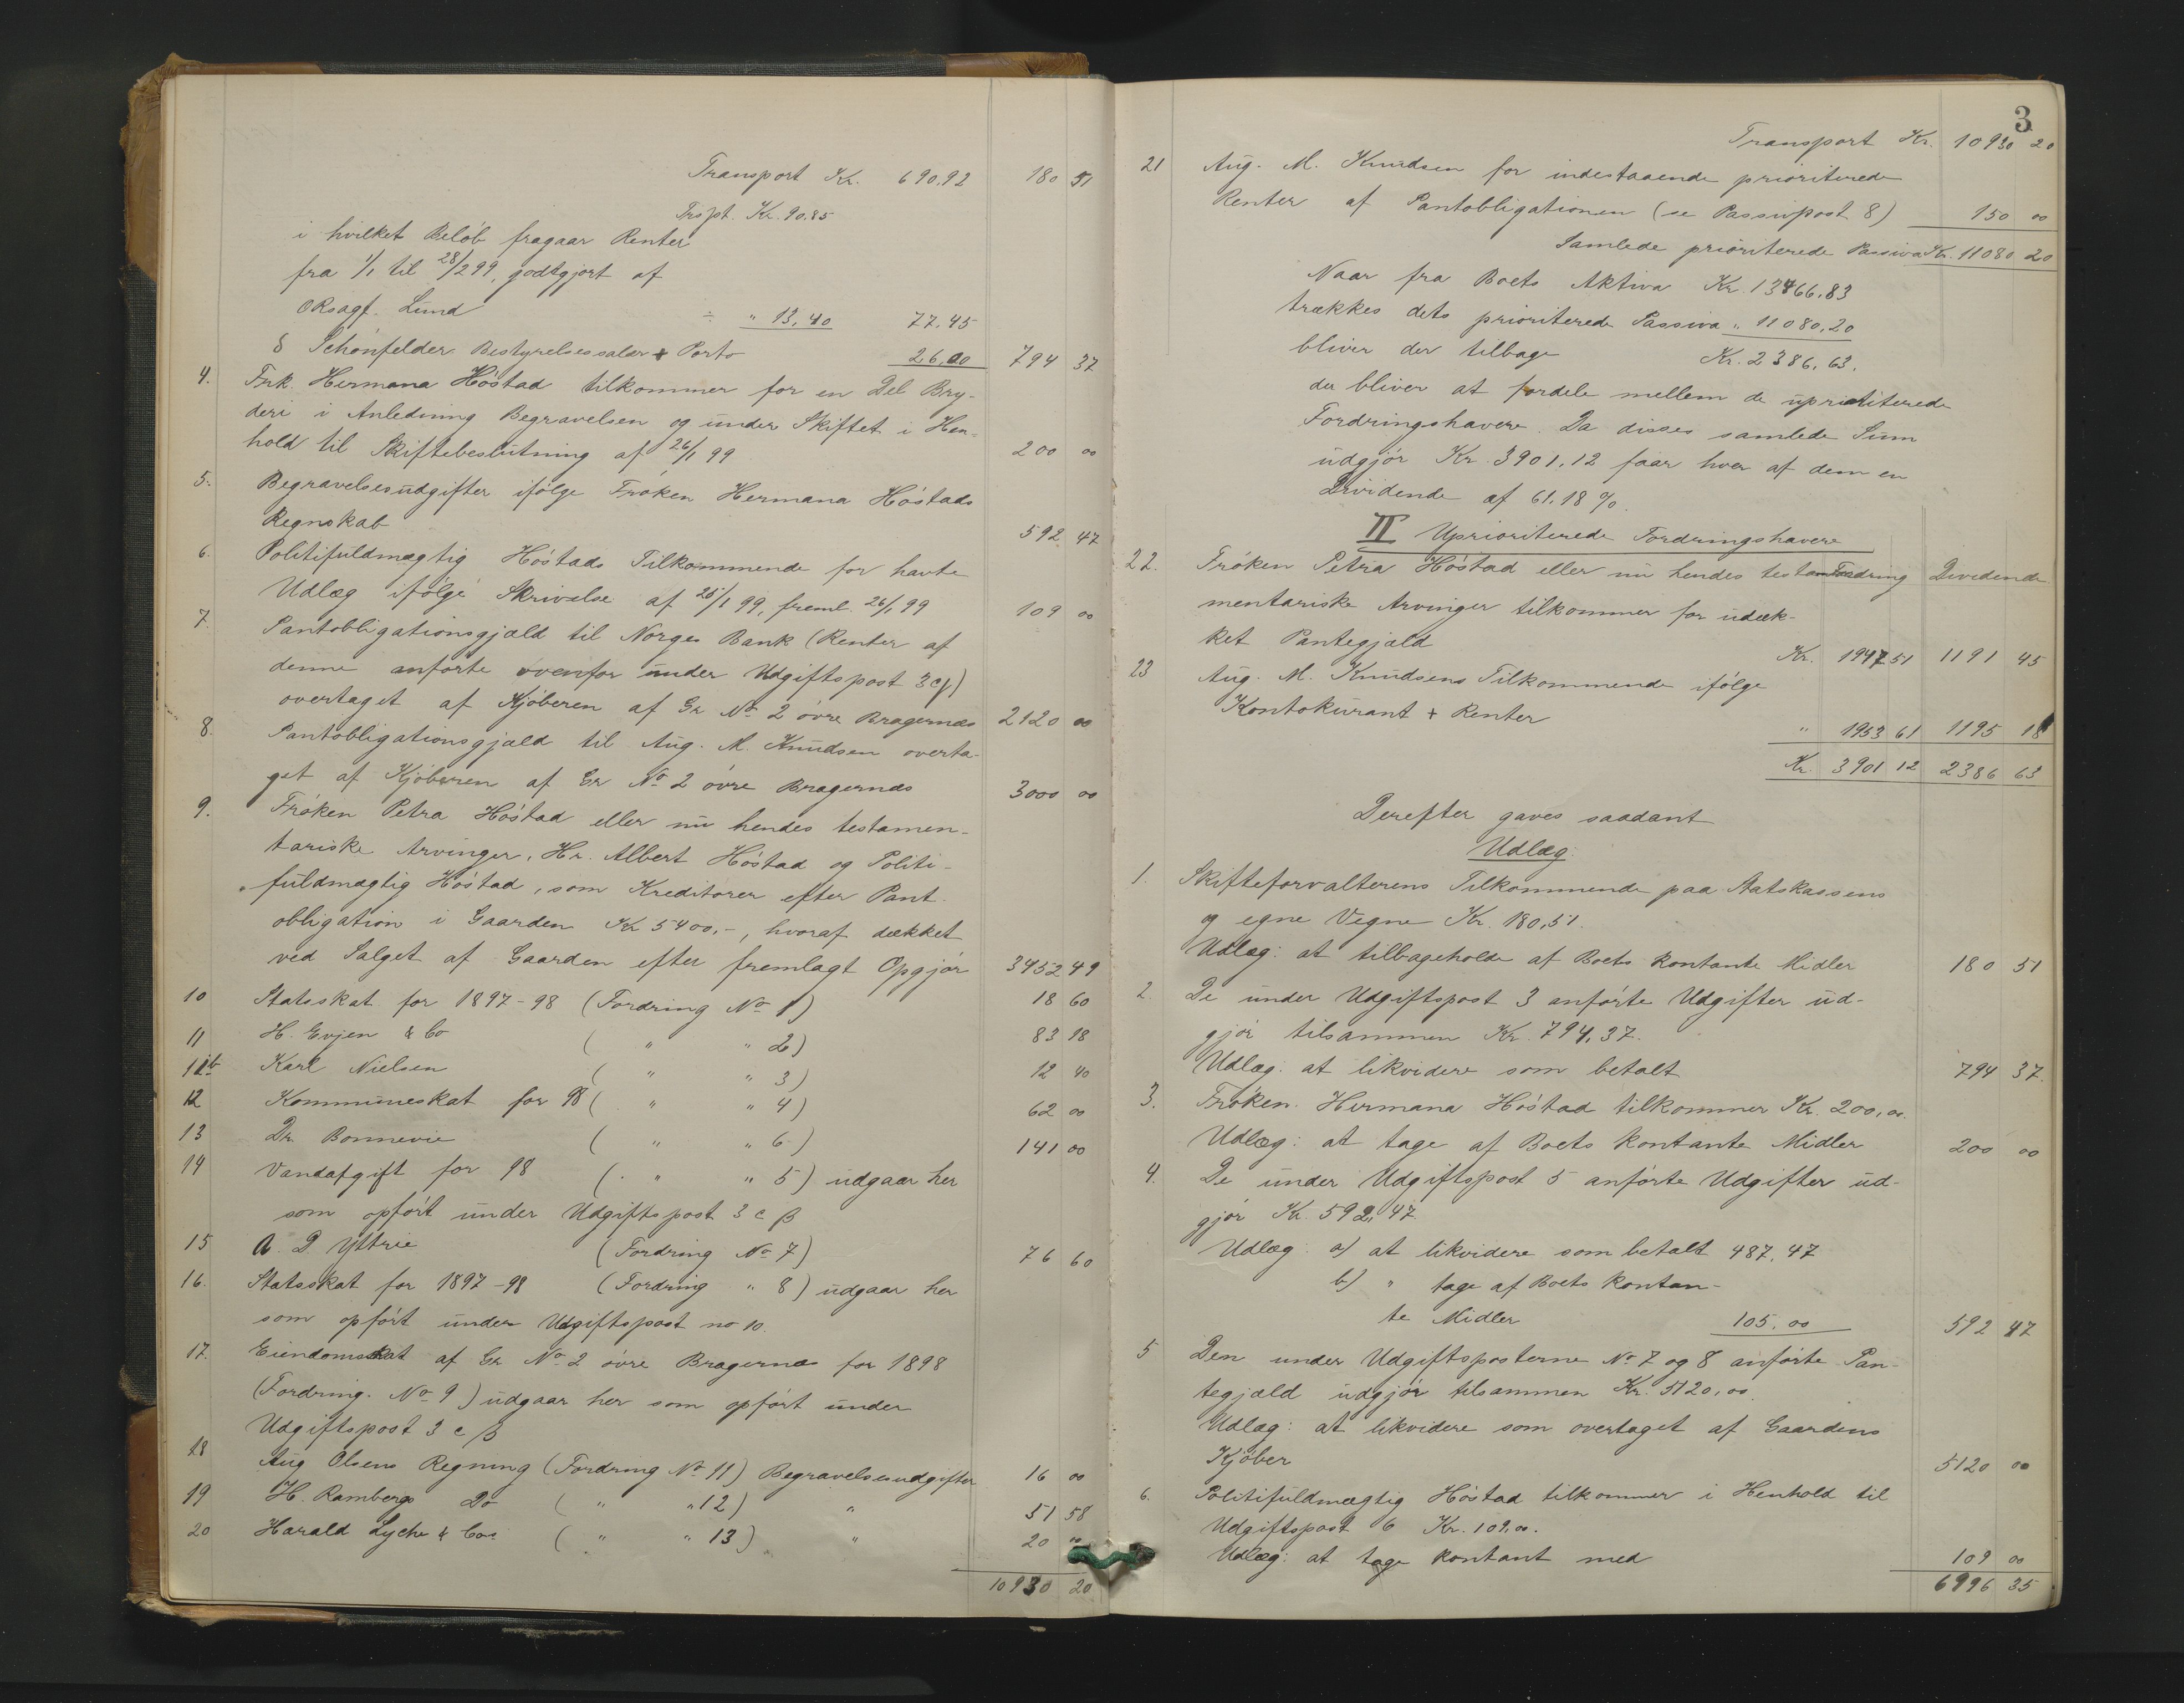 Transport Kr. 690,92 180 51
Trspt. Kr. 90.85
i hvilket Beløb fragaar Renter
fra 1/1 til 28/2 99, godtgjort af
ORsagf. Lund ÷ " 13,40 77,45
δ Schönfelder Bestyrelsessalær + Porto 26,00 794 37
4. Frk. Hermana Høstad tilkommer for en Del Bry-
deri i Anledning Begravelsen og under Skiftet i Hen-
hold til Skiftebeslutning af 26/1 99 200 00
5. Begravelsesudgifter ifølge Frøken Hermana Høstads
Regnskab 592 47
6. Politifuldmægtig Høstads Tilkommende for havte
Udlæg ifølge Skrivelse af 25/1 99, freml. 26/1 99 109 00
7. Pantobligationsgjæld til Norges Bank (Renter af
denne anførte ovenfor under Udgiftspost 3cγ)
overtaget af Kjøberen af Gr No 2 øvre Bragernæs 2120 00
8. Pantobligationsgjæld til Aug. M. Knudsen overta-
get af Kjøberen af Gr No 2 øvre Bragernæs 3000 00
9. Frøken Petra Høstad eller nu hendes testamen-
tariske Arvinger, Hr. Albert Høstad og Politi-
fuldmægtig Høstad, som Kreditorer efter Pant-
obligation i Gaarden Kr 5400,-, hvoraf dækket
ved Salget af Gaarden efter fremlagt Opgjør 3452 49
10 Statsskat for 1897-98 (Fordring No 1) 18 60
11 H. Evjen & Co ( " " 2) 83 18
11b Karl Nielsen ( " " 3) 12 40
12 Kommuneskat for 98 ( " " 4) 62 00
13 Dr. Bonnevie ( " " 6) 141 00
14 Vandafgift for 98 ( " " 5) udgaar her
som opført under Udgiftspost 3 c β
15 A. D Yttrie (Fordring No 7) 76 60
16. Statsskat for 1897-98 (Fordring " 8) udgaar her
som opført under Udgiftspost no 10.
17. Eiendomsskat af Gr No 2 øvre Bragernæs for 1898
(Fordring No 9) udgaar her som opført under
Udgiftspost 3 c β
18 Aug Olsens Regning (Fordring No 11) Begravelsesudgifter 16 00
19 H. Rambergs Do ( " " 12) " 51 58
20 Harald Lyche & Cos ( " " 13) " 20 00
10930 20
3
Transport Kr. 10930 20
21 Aug. M. Knudsen for indestaaende prioriterede
Renter af Pantobligationen (se Passivpost 8) 150 00
Samlede prioriterede Passiva Kr. 11080 20
Naar fra Boets Aktiva Kr. 13466,83
trækkes dets prioriterede Passiva " 11080,20
bliver der tilbage Kr. 2386,63.
der bliver at fordele mellem de uprioriterede
Fordringshavere. Da disses samlede Sum
udgjør Kr. 3901,12 faar hver af dem en
Dividende af 61,18 %.
II Uprioriterede Fordringshavere
22. Frøken Petra Høstad eller nu hendes testa- Fordring Dividende
mentariske Arvinger tilkommer for udæk-
ket Pantegjæld Kr. 1947 51 1191 45
23 Aug. M. Knudsens Tilkommende ifølge
Kontokurant + Renter " 1953 61 1195 18
Kr. 3901 12 2386 63
Derefter gaves saadant
Udlæg:
1. Skifteforvalterens Tilkommende paa Statskassens
og egne Vegne Kr. 180,51.
Udlæg: at tilbageholde af Boets kontante Midler 180 51
2. De under Udgiftspost 3 anførte Udgifter ud-
gjør tilsammen Kr. 794,37.
Udlæg: at likvidere som betalt 794 37.
3. Frøken Hermana Høstad tilkommer Kr. 200,00.
Udlæg: at tage af Boets kontante Midler 200 00
4. De under Udgiftspost 5 anførte Udgifter ud-
gjør Kr. 592,47.
Udlæg: a) at likvidere som betalt 487.47
b) " tage af Boets kontan-
te Midler 105.00 592 47
5 Den under Udgiftsposterne No 7 og 8 anførte Pan-
tegjæld udgjør tilsammen Kr. 5120,00.
Udlæg: at likvidere som overtaget af Gaardens
Kjøber 5120 00
6. Politifuldmægtig Høstad tilkommer i Henhold til
Udgiftspost 6 Kr. 109,00.
Udlæg: at tage kontant med 109 00
6996 35